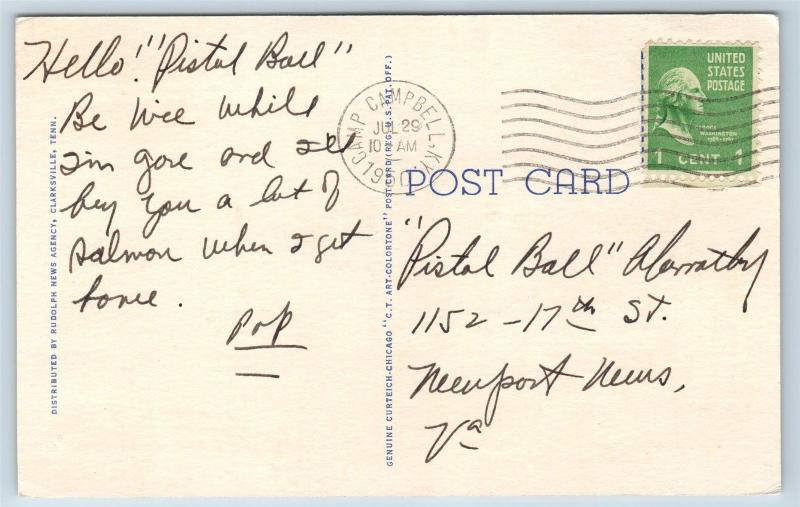 Hello! "Pistal Ball"
Be nice while
I'm gone and I'll
buy you a lot of
salmon when I get
home.
Pop
DISTRIBUTED BY RUDOLPH NEWS AGENCY, CLARKSVILLE, TENN.
GENUINE CURTEICH-CHICAGO "C.T. ART-COLORTONE" POST CARD (REG. U.S. PAT. OFF.)
CAMP CAMPBELL, KY.
JUL 29
10 AM
1950
UNITED
STATES
POSTAGE
GEORGE
WASHINGTON
1789-1797
1 CENT 1
POST CARD
"Pistal Ball"
1152 - 17th St.
Newport News,
Va